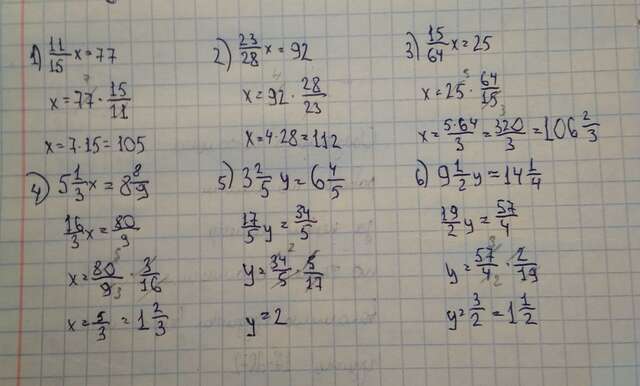 1) 11/15 x = 77
x = 77 · 15/11
x = 7 · 15 = 105
2) 23/28 x = 92
x = 92 · 28/23
x = 4 · 28 = 112
3) 15/64 x = 25
x = 25 · 64/15
x = 5·64/3 = 320/3 = 106 2/3
4) 5 1/3 x = 8 8/9
16/3 x = 80/9
x = 80/9 · 3/16
x = 5/3 = 1 2/3
5) 3 2/5 y = 6 4/5
17/5 y = 34/5
y = 34/5 · 5/17
y = 2
6) 9 1/2 y = 14 1/4
19/2 y = 57/4
y = 57/4 · 2/19
y = 3/2 = 1 1/2